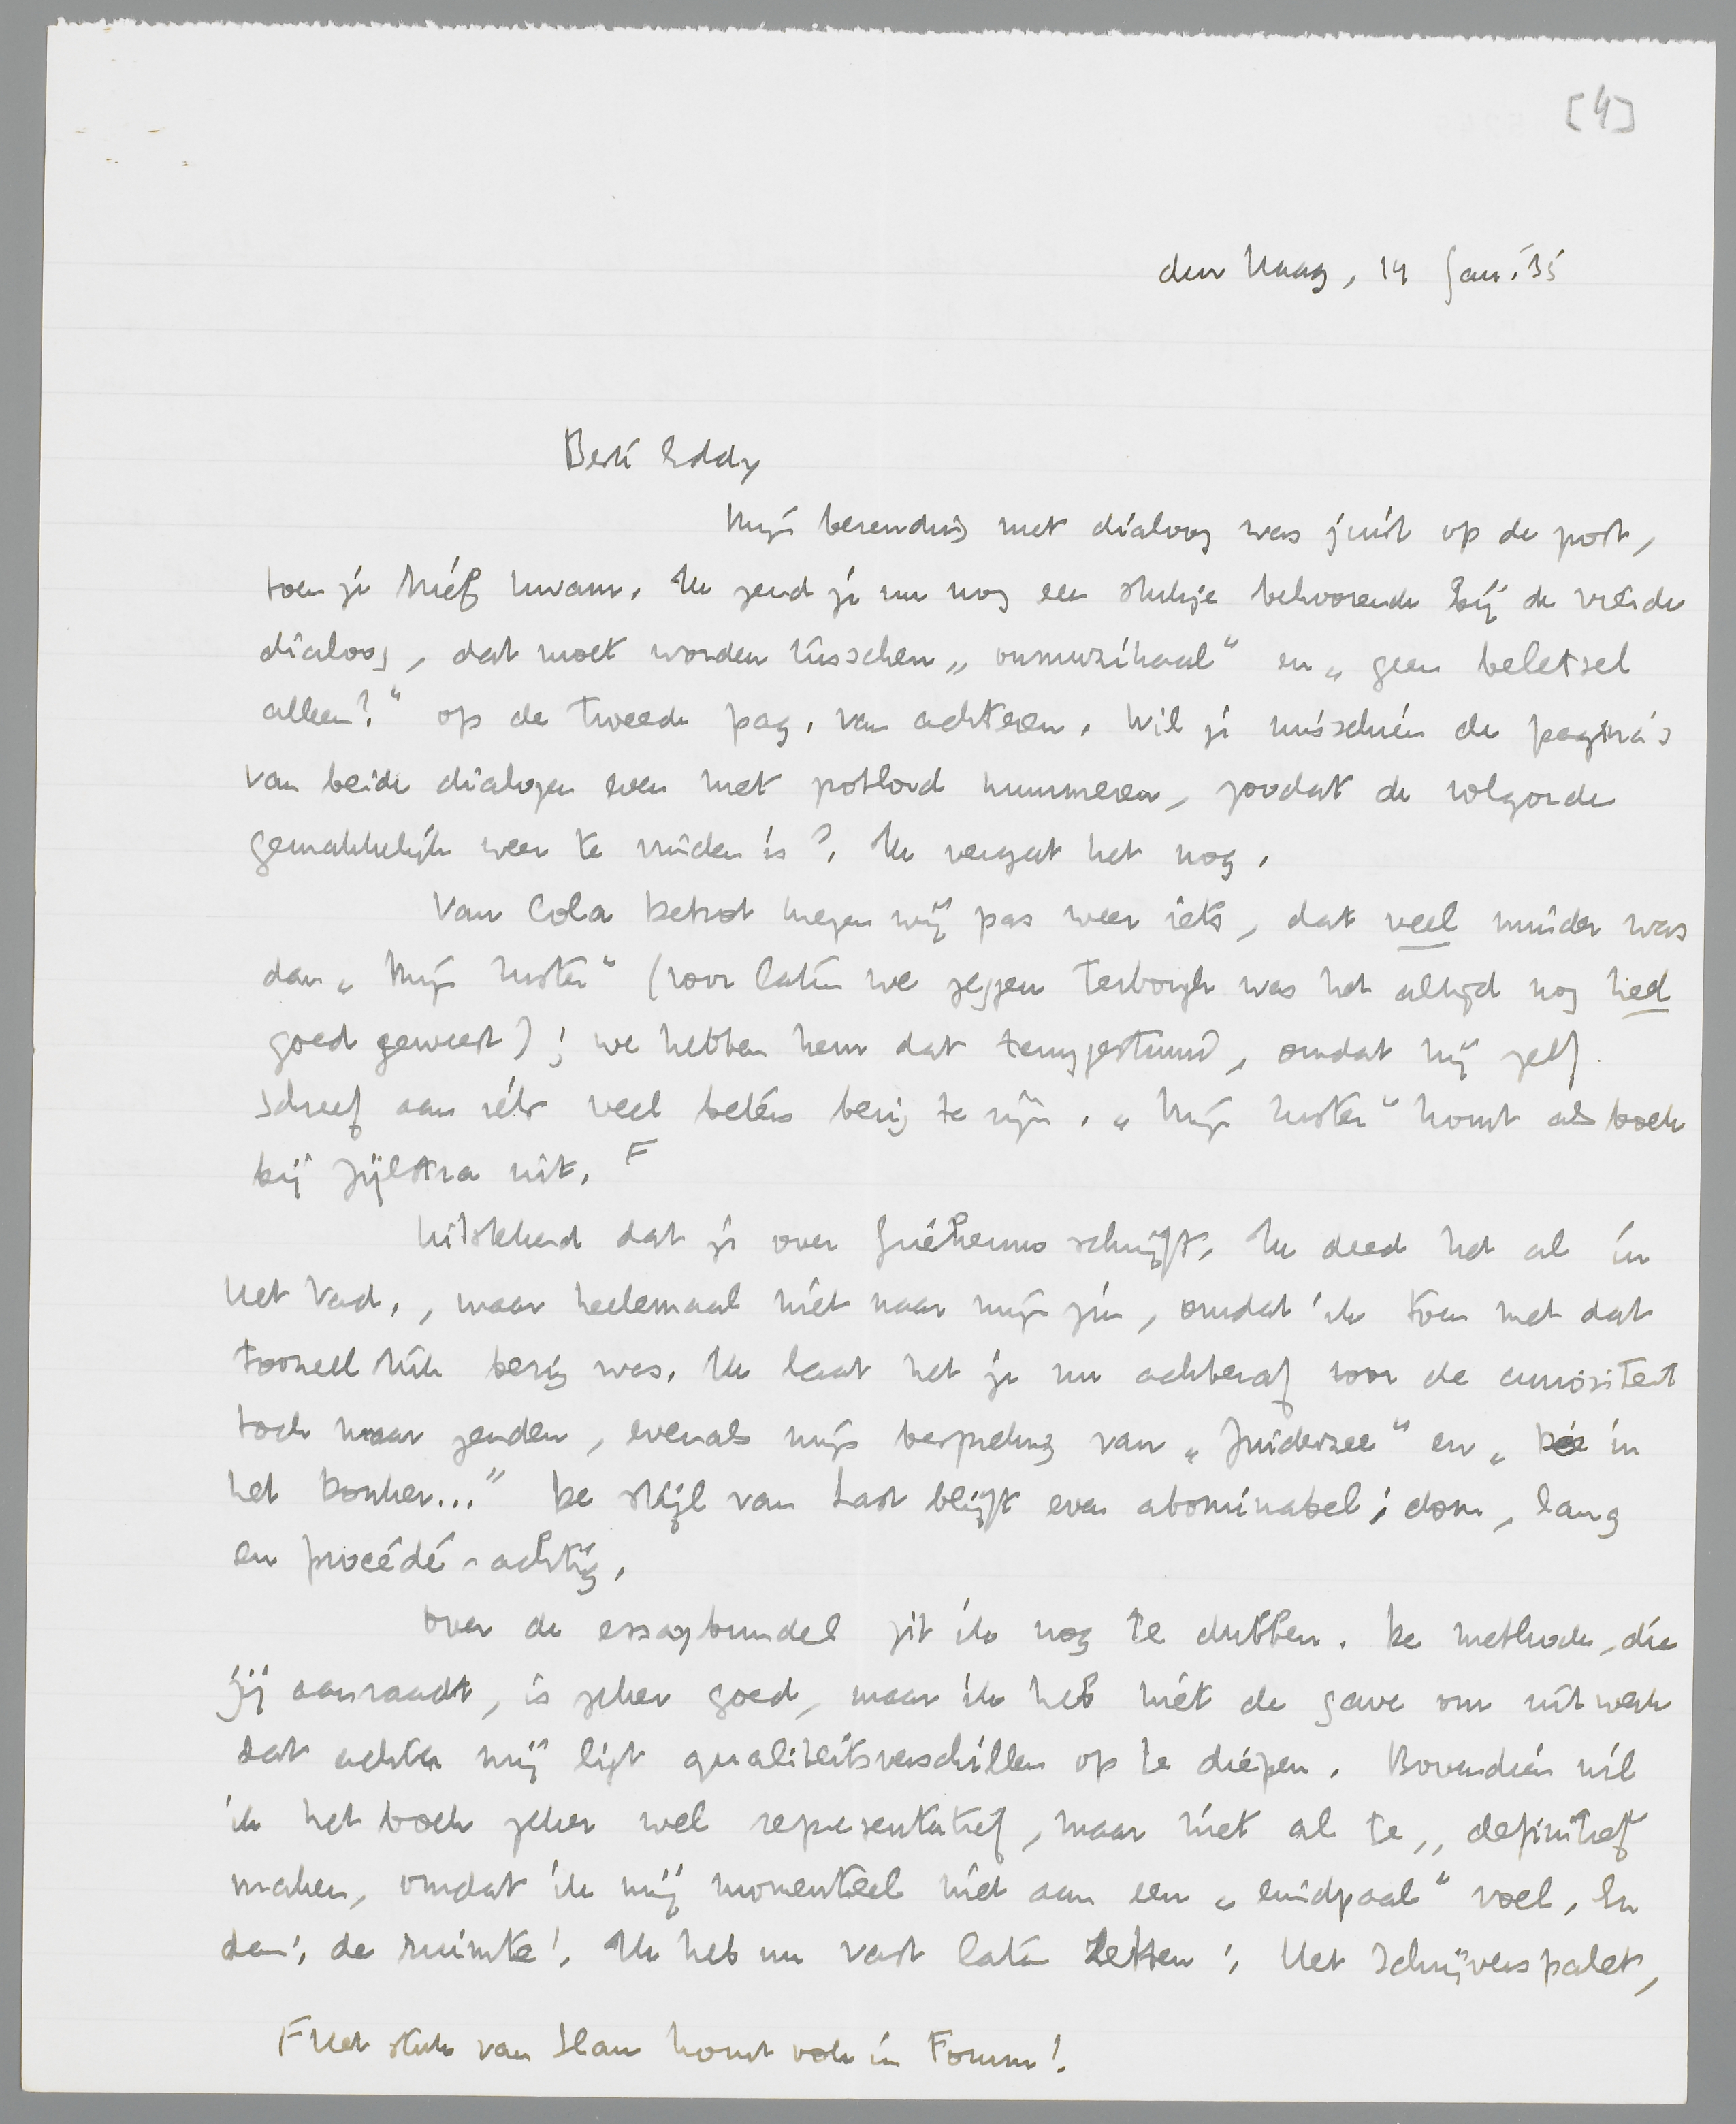 [4]
den Haag, 14 Jan. '35
Beste Eddy
Mijn bezending met dialoog was juist op de post,
toen je brief kwam. Ik zend je nu nog een stukje behoorende bij de vierde
dialoog, dat moet worden tusschen „onmuzikaal" en „geen beletsel
alleen?" op de tweede pag. van achteren. Wil je misschien de pagina's
van beide dialogen even met potlood nummeren, zoodat de volgorde
gemakkelijk weer te vinden is? Ik vergat het nog.
Van Cola Debrot kregen wij pas weer iets, dat veel minder was
dan „Mijn Zuster" (voor laten we zeggen Terborgh was het altijd nog heel
goed geweest); we hebben hem dat teruggestuurd, omdat hij zelf
schreef aan iets veel beters bezig te zijn. „Mijn Zuster" komt als boek
bij Zijlstra uit. F
Uitstekend dat je over Guéhenno schrijft. Ik deed het al in
Het Vad., maar heelemaal niet naar mijn zin, omdat ik toen met dat
tooneelstuk bezig was. Ik laat het je nu achteraf voor de curiositeit
toch maar zenden, evenals mijn bespreking van „Zuiderzee" en „ in
het donker..." De stijl van Last blijft even abominabel; dom, lang
en procédé-achtig.
Over de essaybundel zit ik nog te dubben. De methode, die
jij aanraadt, is zeker goed, maar ik heb niet de gave om uit werk
dat achter mij ligt qualiteitsverschillen op te diepen. Bovendien wil
ik het boek zeker wel representatief, maar niet al te „definitief
maken, omdat ik mij momenteel niet aan een „eindpaal" voel. En
dan: de ruimte! Ik heb nu vast laten zetten: Het Schrijverspalet,
F Het stuk van Slau komt ook in Forum!